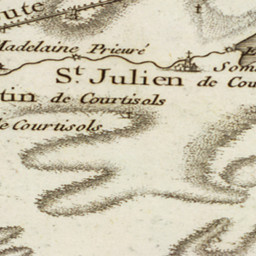 Madelaine Prieuré
Som
St. Julien de Cou
tin de Courtisols
e Courtisols